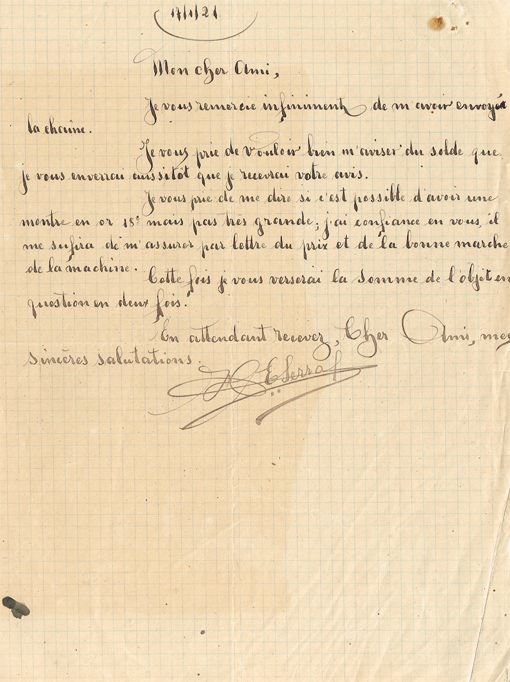 17/1/21
Mon cher Ami,
Je vous remercie infiniment de m'avoir envoyée
la chaine.
Je vous prie de vouloir bien m'aviser du solde que
je vous enverrai aussitot que je recevrai votre avis.
Je vous prie de me dire si c'est possible d'avoir une
montre en or 18c mais pas très grande; j'ai confiance en vous, il
me sufira de m'assurer par lettre du prix et de la bonne marche
de la machine.
Cette fois je vous verserai la somme de l'objet en
question en deux fois.
En attendant recevez, Cher Ami, mes
sincères salutations.